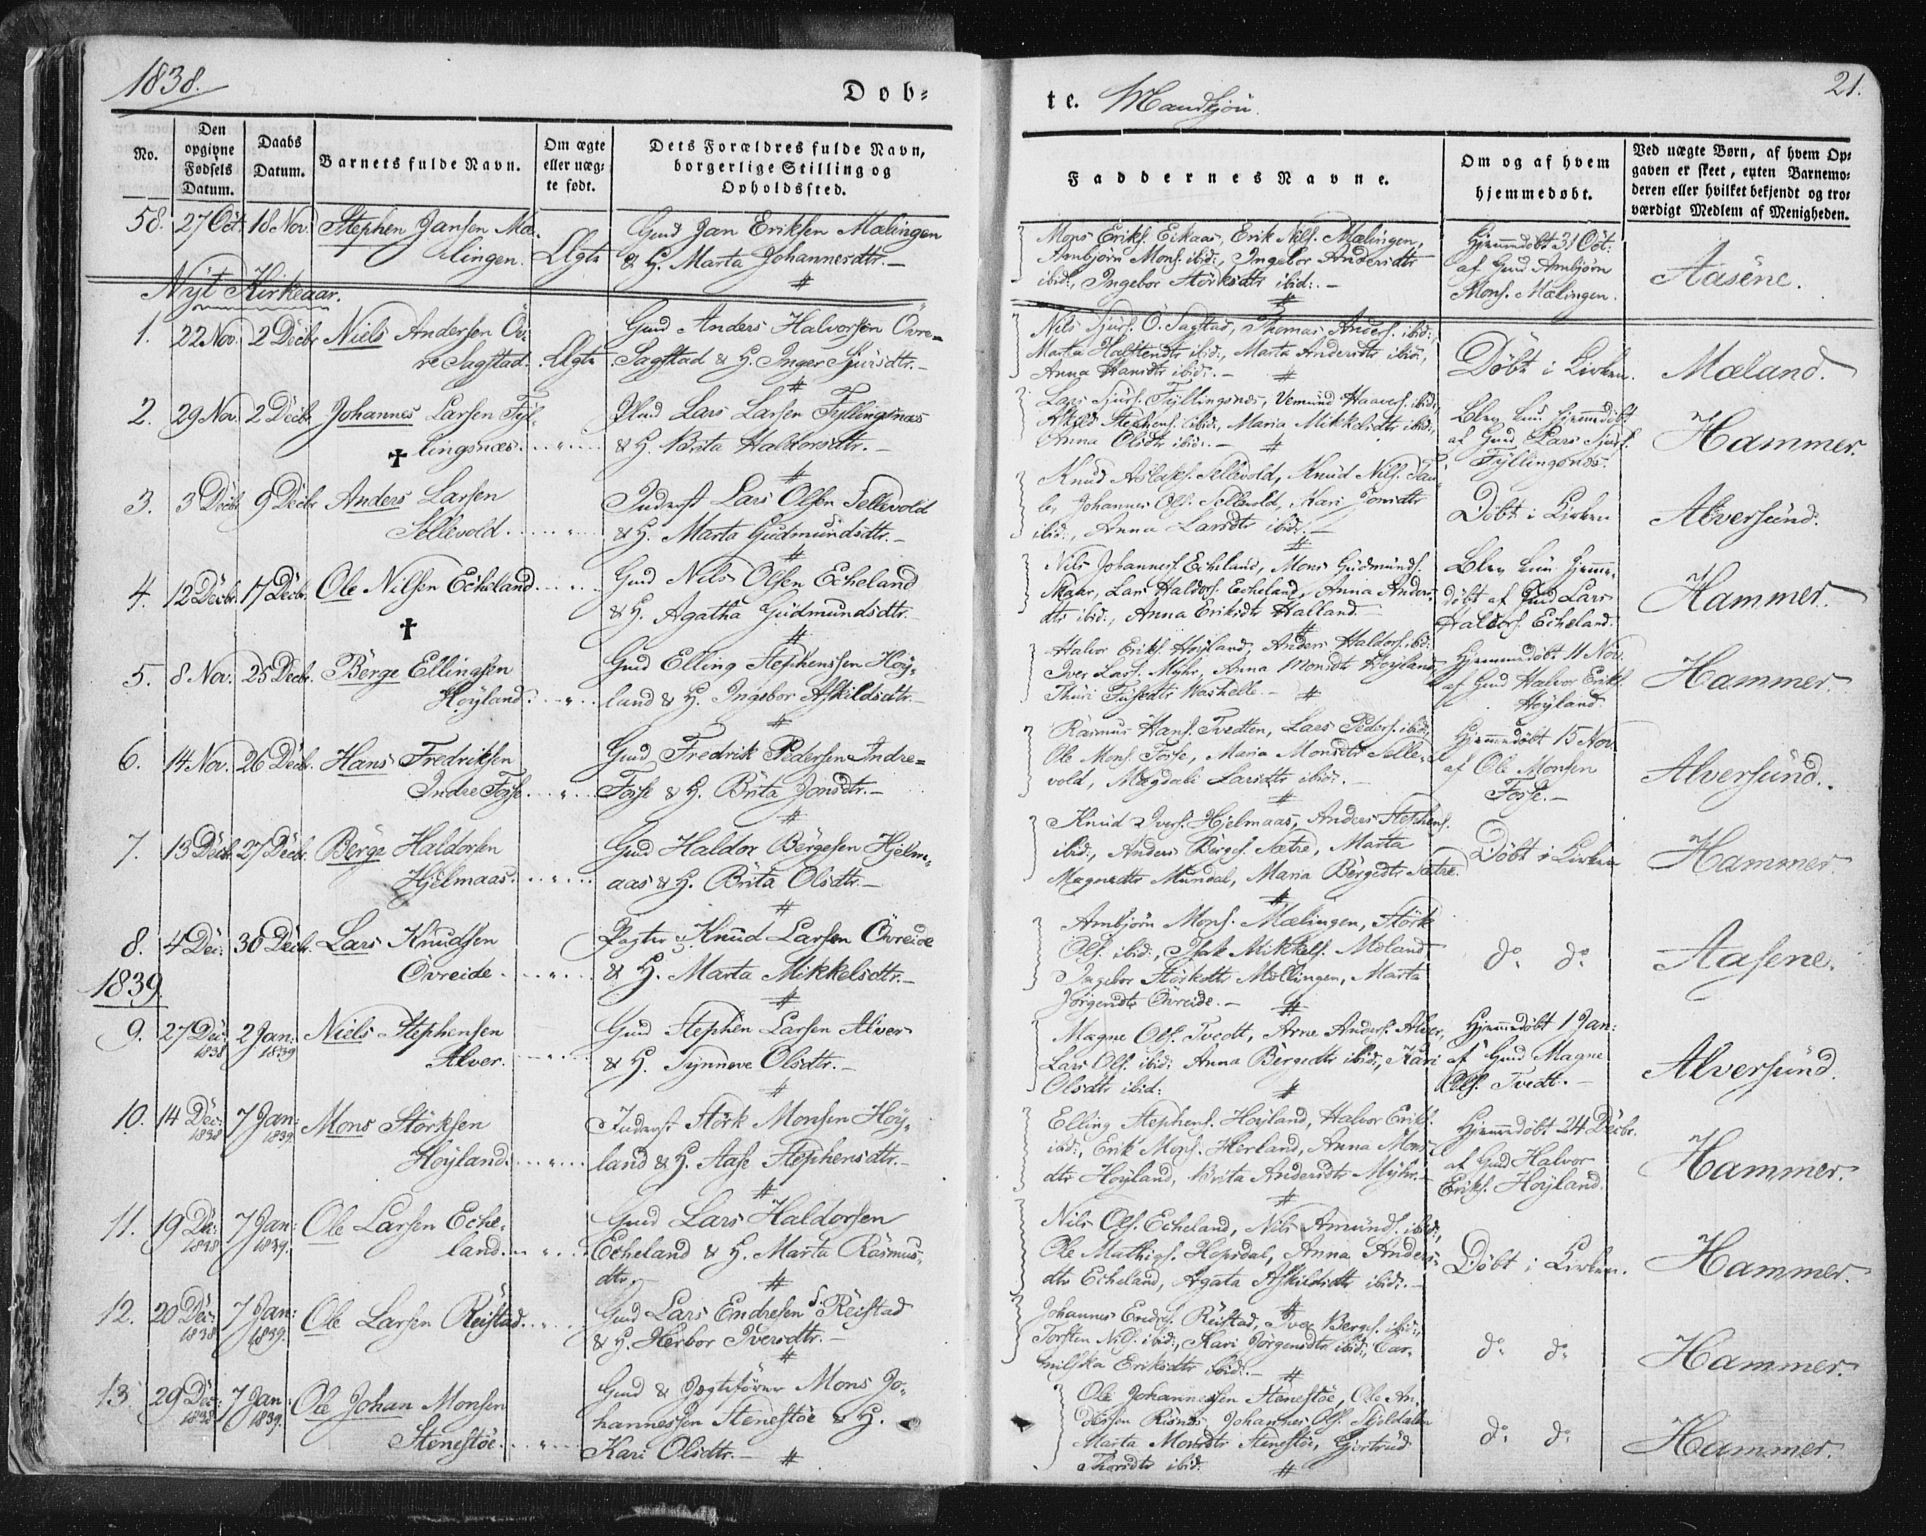 1838.
Døb-
te. Mandkjøn.
21.
No.
Den opgivne Fødsels Datum.
Daabs Datum.
Barnets fulde Navn.
Om ægte eller uæg-
te født.
Dets Forældres fulde Navn,
borgerlige Stilling og
Opholdssted.
Faddernes Navne.
Om og af hvem
hjemmedøbt.
Ved uægte Børn, af hvem Op-
gaven er skeet, enten Barnemo-
deren eller hvilket bekjendt og tro-
værdigt Medlem af Menigheden.
58. 27 Oct. 18 Nov. Stephen Jansen Mæ-
lingen. Ægte
Gmd Jan Eriksen Mælingen
& H. Marta Johannesdtr.
Mons Eriks. Eikaas, Erik Nils. Mælingen,
Ambjørn Mons. ibid:, Ingebor Andersdtr
ibid:, Ingebor Störksdtr ibid:.
Hjemmedøbt 31 Oct:
af Gmd Ambjørn
Mons. Mælingen.
Aasene.
Nyt Kirkeaar.
1. 22 Nov. 2 Decbr. Niels Andersen Öv-
re Sagstad. Ægte
Gmd Anders Halvorsen Övre-
Sagstad & H. Inger Sjursdtr.
Nils Sjurs. Ö. Sagstad, Thomas Anders. ibid:,
Marta Holstendtr ibid:, Marta Andersdtr ibid:,
Anna Hansdtr ibid:.
Döbt i Kirken.
Mæland.
2. 29 Nov. 2 Decbr. Johannes Larsen Fyl-
lingsnæs.
Gmd Lars Larsen Fyllingsnæs
& H. Brita Haldorsdtr.
Lars Sjurs. Fyllingsnæs, Vemund Haavs. ibid:,
Askild Stephens. ibid:, Maria Mikkelsdtr ibid:,
Anna Olsdtr ibid:.
Blev kun hjemmedøbt
af Gmd Lars Sjurs.
Fyllingsnæs.
Hammer.
3. 3 Decbr. 9 Decbr. Anders Larsen
Sellevold.
Inderst Lars Olsen Sellevold
& H. Marta Gudmundsdtr.
Knud Aslaks. Sellevold, Knud Nils. Tau-
le, Johannes Ols. Sellevold, Kari Jonsdtr
ibid:, Anna Larsdtr ibid:.
Döbt i Kirken
Alversund.
4. 12 Decbr. 17 Decbr. Ole Nilsen Echeland
Gmd Nils Olsen Echeland
& H. Agatha Gudmundsdtr.
Nils Johannes. Echeland, Mons Gudmunds.
Skaar, Lars Haldors. Echeland, Anna Anders-
dtr ibid:, Anna Eriksdtr Halland.
Blev kun hjemme-
döbt af Gmd Lars
Haldors. Echeland.
Hammer.
5. 8 Nov. 25 Decbr. Börge Ellingsen
Høyland.
Gmd Elling Stephensen Höy-
land & H. Ingebor Askildsdtr.
Halvor Eriks. Høyland, Anders Haldors. ibid:
Iver Lars. Myhr, Anna Monsdtr Høyland,
Hjemmedøbt 11 Nov.
af Gmd Halvor Eriks.
Høyland.
Hammer.
6. 14 Nov. 26 Decbr. Hans Fredriksen
Indre Fosse.
Gmd Fredrik Pedersen Indre-
Fosse & H. Brita Jonsdtr.
Rasmus Hans. Tvedten, Lars Peders. ibid:,
Ole Mons. Fosse, Maria Monsdtr Selle-
vold, Magdali Larsdtr ibid:.
Hjemmedøbt 15 Nov.
af Ole Monsen
Fosse.
Alversund.
7. 13 Decbr. 27 Decbr. Börge Haldorsen
Hjelmaas.
Gmd Haldor Börgesen Hjelm-
aas & H. Brita Olsdtr.
Knud Ivers. Hjelmaas, Anders Stephens.
ibid:, Anders Börges. Sætre, Marta
Magnedtr Mundal, Maria Börgedtr Sætre.
Döbt i Kirken
Hammer.
8. 4 Dec: 30 Decbr. Lars Knudsen
Övreide.
Pagter Knud Larsen Övreide
& H. Marta Mikkelsdtr.
Ambjørn Mons. Mælingen, Störk
Ols. ibid:, Isak Mikkels. Moland
Ingebor Störksdtr Mællingen, Marta
Jörgensdtr Övreide.
do do
Aasene.
1839.
9. 27 Dec: 1838 2 Jan: 1839 Niels Stephensen
Alver.
Gmd Stephen Larsen Alver
& H. Synneve Olsdtr.
Magne Ols. Tvedt, Arne Anders. Alver,
Lars Ols. ibid: Anna Börgedtr ibid:, Kari
Olsdtr ibid:
Hjemmedøbt 1 Jan:
af Gmd Magne
Ols. Tvedt.
Alversund.
10. 14 Dec: 1838 7 Jan: 1839. Mons Störksen
Høyland.
Inderst Störk Monsen Höy-
land & H. Aase Stephensdtr.
Elling Stephens. Høyland, Halvor Eriks.
ibid:, Erik Mons. Herland, Anna Mons-
dtr Høyland, Brita Andersdtr Myhr.
Hjemmedøbt 24 Decbr.
af Gmd Halvor
Eriks. Høyland.
Hammer.
11. 19 Dec: 1838 7 Jan: 1839. Ole Larsen Eche-
land.
Gmd Lars Haldorsen
Echeland & H. Marta Rasmus-
dtr.
Nils Ols. Echeland, Nils Amunds. ibid:,
Ole Mathias. Hopsdal, Anna Anders-
dtr Echeland, Agata Askildsdtr ibid:.
Döbt i Kirken.
Hammer.
12. 20 Dec: 1838 7 Jan: 1839. Ole Larsen Reistad.
Gmd Lars Endresen S. Reistad
& H. Herbor Iversdtr.
Johannes Endres. Reistad, Iver Börges. ibid:,
Torsten Nils. ibid:, Kari Jörgensdtr ibid:, Car-
milska Eriksdtr ibid:.
do do
Hammer.
13. 29 Dec: 1838 7 Jan: 1839. Ole Johan Monsen
Stenestöe.
Gmd & Jægtefører Mons Jo-
hannessen Stenestöe & H.
Kari Olsdtr.
Ole Johannessen Stenestöe, Ole An-
dersen Risnes, Johannes Ols. Skjeldalen
Marta Monsdtr Stenestöe, Gjertrud
Thorsdtr ibid:
do do
Hammer.